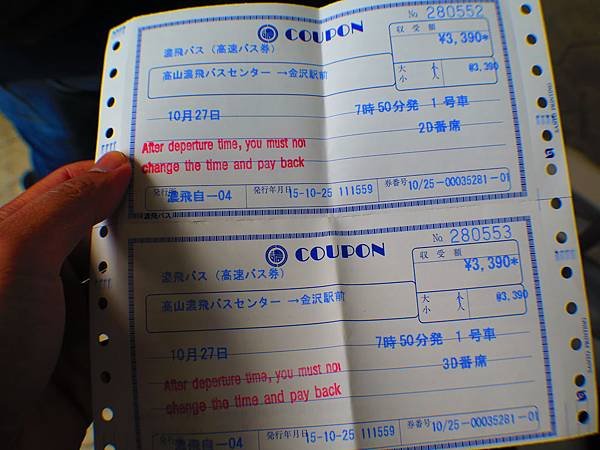 No 280552
COUPON
収受額
¥3,390*
濃飛バス（高速バス券）
大 小 人 ¥3,390
高山濃飛バスセンター →金沢駅前
10月27日 7時50分発 1号車
2D番席
After departure time, you must not
change the time and pay back
発行所 濃飛自ー04 発行年月日 15-10-25 111559 券番号 10/25-00035281-01
濃飛バス
No 280553
COUPON
収受額
¥3,390*
濃飛バス（高速バス券）
大 小 人 ¥3,390
高山濃飛バスセンター →金沢駅前
10月27日 7時50分発 1号車
3D番席
After departure time, you must not
change the time and pay back
濃飛自ー04 発行年月日 15-10-25 111559 券番号 10/25-00035281-01